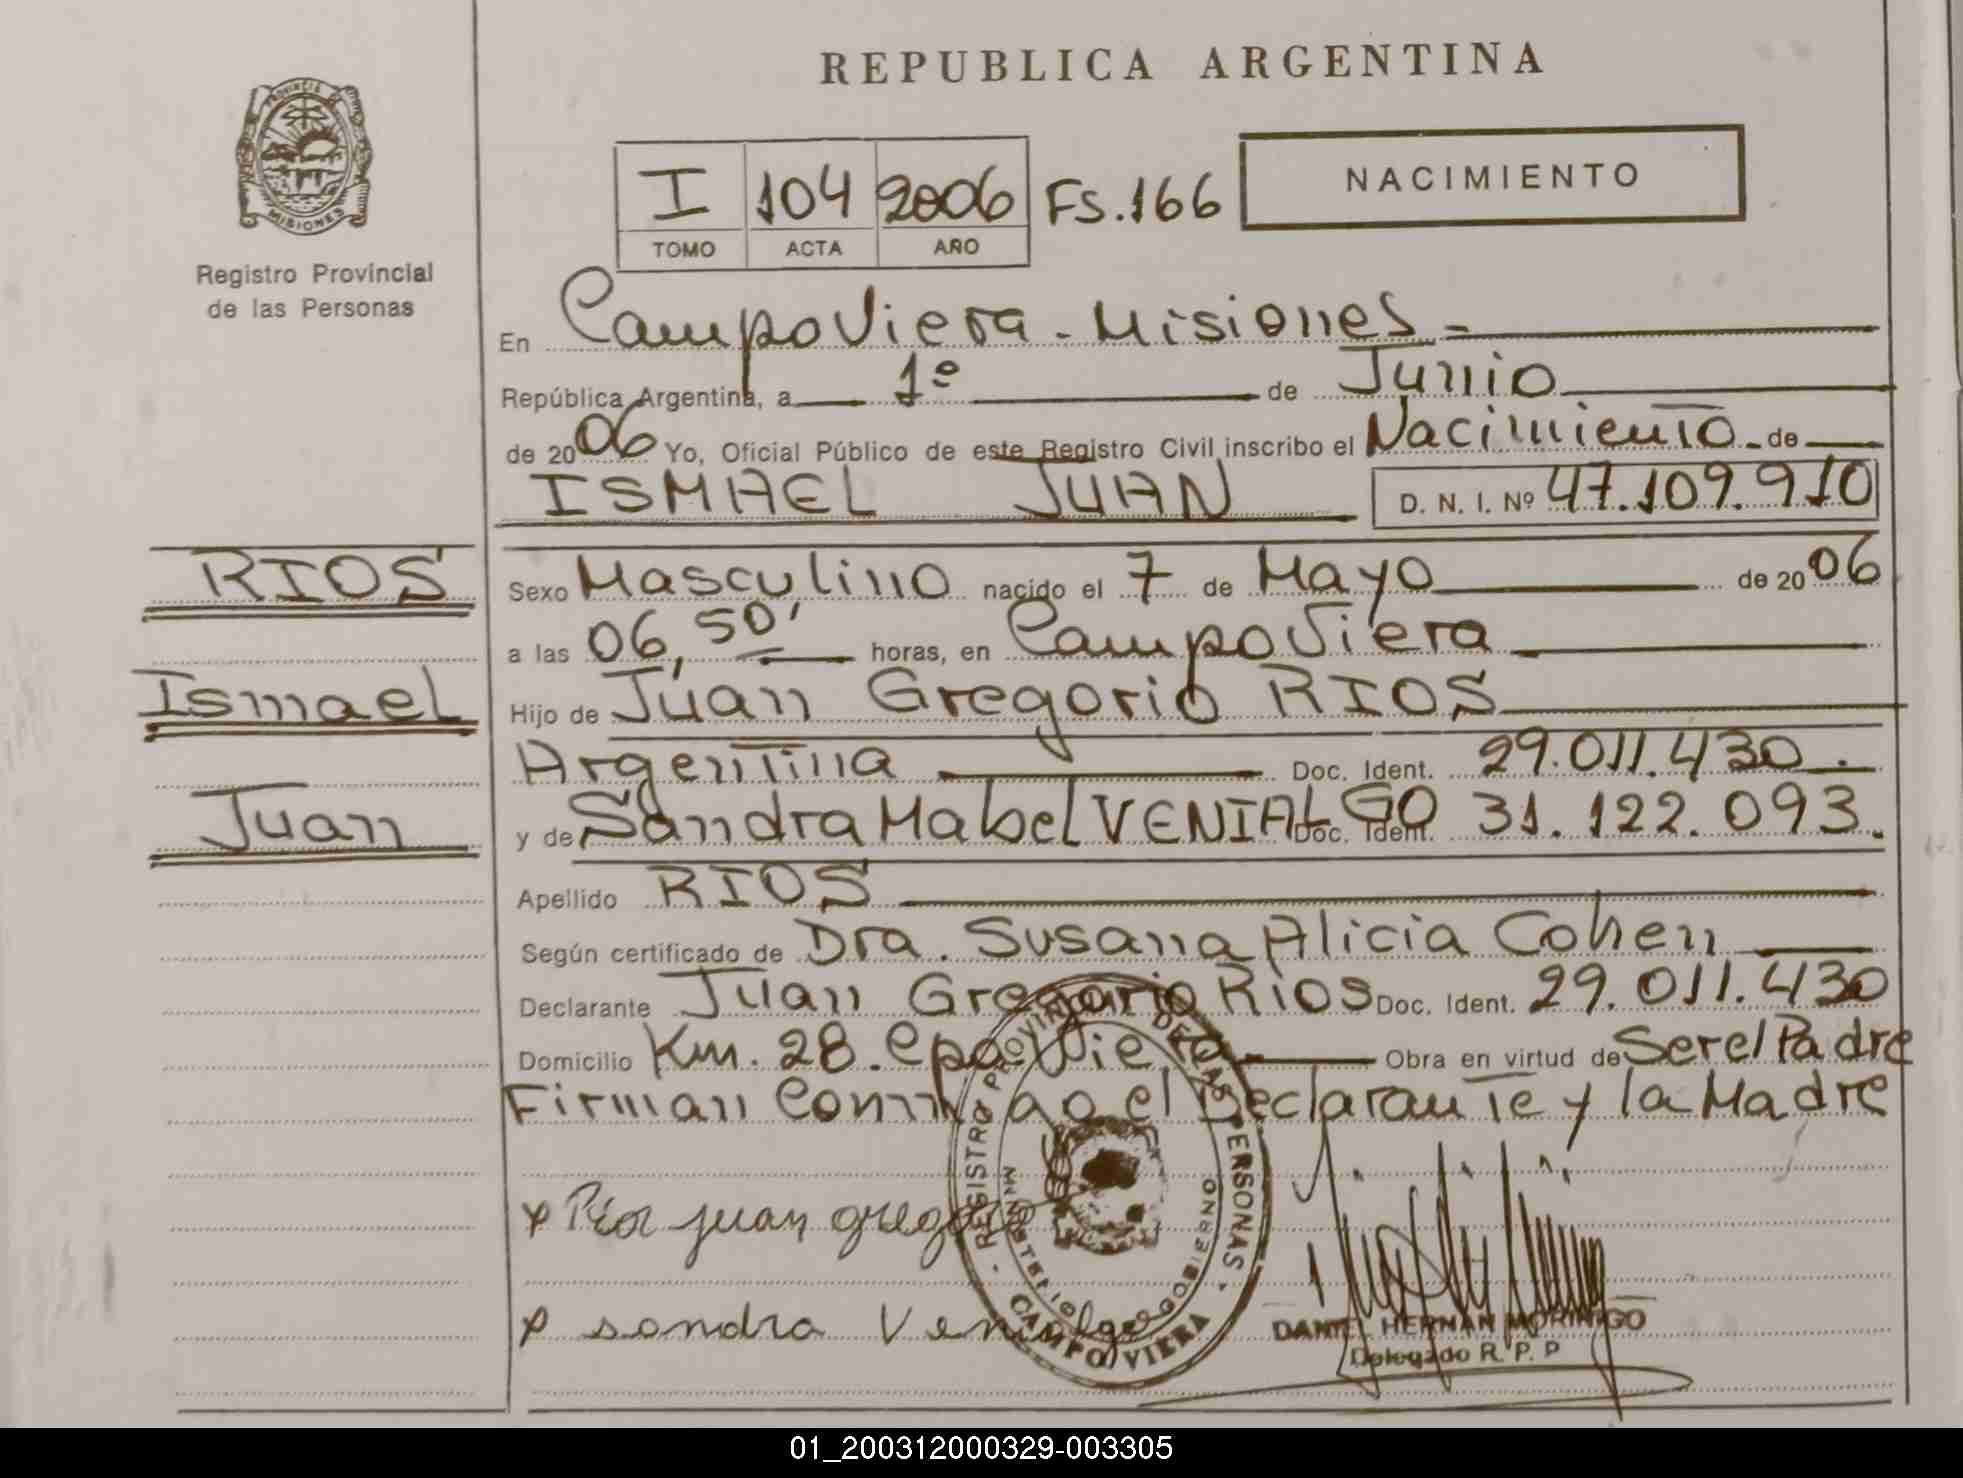 REPUBLICA ARGENTINA
PROVINCIA DE MISIONES
Registro Provincial
de las Personas
I 104 2006 Fs.166
TOMO ACTA AÑO
NACIMIENTO
En Campo Viera - Misiones -
República Argentina, a 1º de Junio
de 2006 Yo, Oficial Público de este Registro Civil inscribo el Nacimiento de
ISMAEL JUAN D. N. I. Nº 47.109.910
RIOS
Ismael
Juan
Sexo Masculino nacido el 7 de Mayo de 2006
a las 06,50' horas, en Campo Viera
Hijo de Juan Gregorio RIOS
Argentina Doc. Ident. 29.011.430.
y de Sandra Mabel VENIALGO Doc. Ident. 31.122.093.
Apellido RIOS
Según certificado de Dra. Susana Alicia Cohen
Declarante Juan Gregorio Rios Doc. Ident. 29.011.430
Domicilio Km. 28. Cpo Viera Obra en virtud de Ser el Padre
Firman Conmigo el Declarante y la Madre
x Rios juan gregorio
x sandra Venialgo
REGISTRO PROVINCIAL DE LAS PERSONAS
MINISTERIO DE GOBIERNO
CAMPO VIERA
DANIEL HERNAN MORINIGO
Delegado R. P. P
01_200312000329-003305